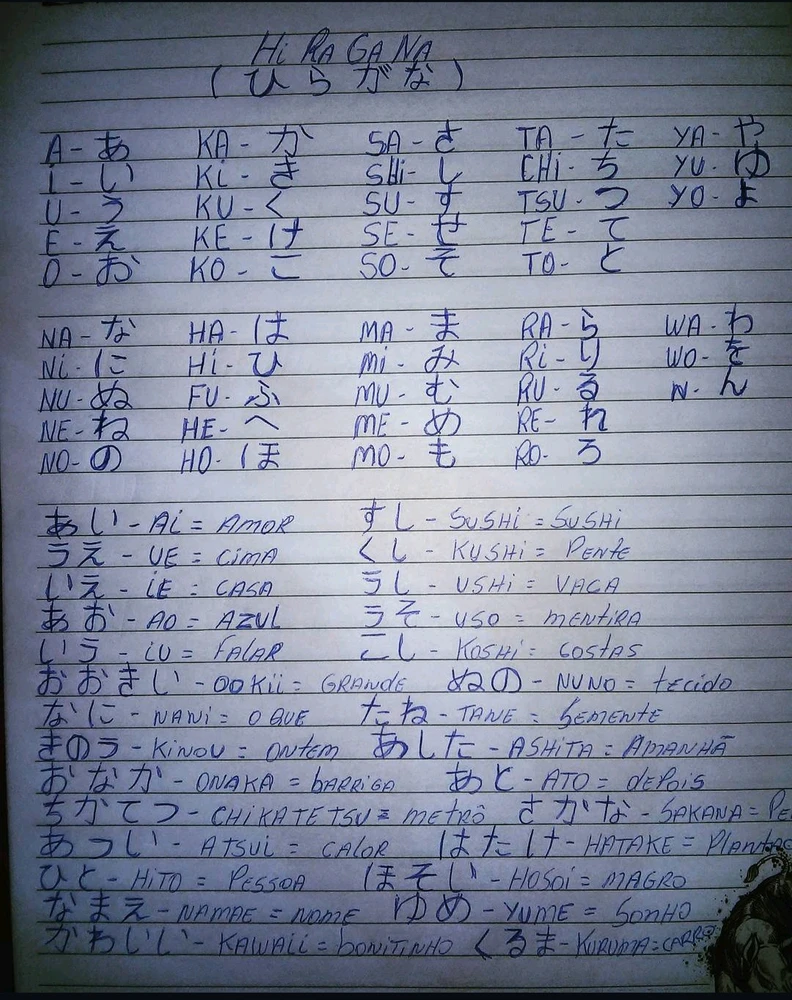 HiRAGANA
(ひらがな)
A - あ KA - か SA - さ TA - た YA - や
i - い Ki - き SHi - し CHi - ち YU - ゆ
U - う KU - く SU - す TSU - つ YO - よ
E - え KE - け SE - せ TE - て
O - お KO - こ SO - そ TO - と
NA - な HA - は MA - ま RA - ら WA - わ
Ni - に Hi - ひ Mi - み Ri - り WO - を
NU - ぬ FU - ふ MU - む RU - る N - ん
NE - ね HE - へ ME - め RE - れ
NO - の HO - ほ MO - も RO - ろ
あい - Ai = AMOR すし - SUSHi = SUSHi
うえ - UE = CiMA くし - KUSHi = PENtE
いえ - iE = CASA うし - USHi = VACA
あお - AO = AZUL うそ - USO = MENtiRA
いう - iU = FALAR こし - KOSHi = COStAS
おおきい - OOKii = GRANdE ぬの - NUNO = tECidO
なに - NANi = O QUE たね - TANE = SEMENtE
きのう - KiNOU = ONtEM あした - ASHiTA = AMANHÃ
おなか - ONAKA = bARRiGA あと - ATO = dEPOiS
ちかてつ - CHiKATETSU = MEtRÔ さかな - SAKANA =
あつい - ATSUi = CALOR はたけ - HATAKE =
ひと - HiTO = PESSOA ほそい - HOSOi = MAGRO
なまえ - NAMAE = NOME ゆめ - YUME = SONHO
かわいい - KAWAii = bONiTiNHO くるま - KURUMA = CARRO